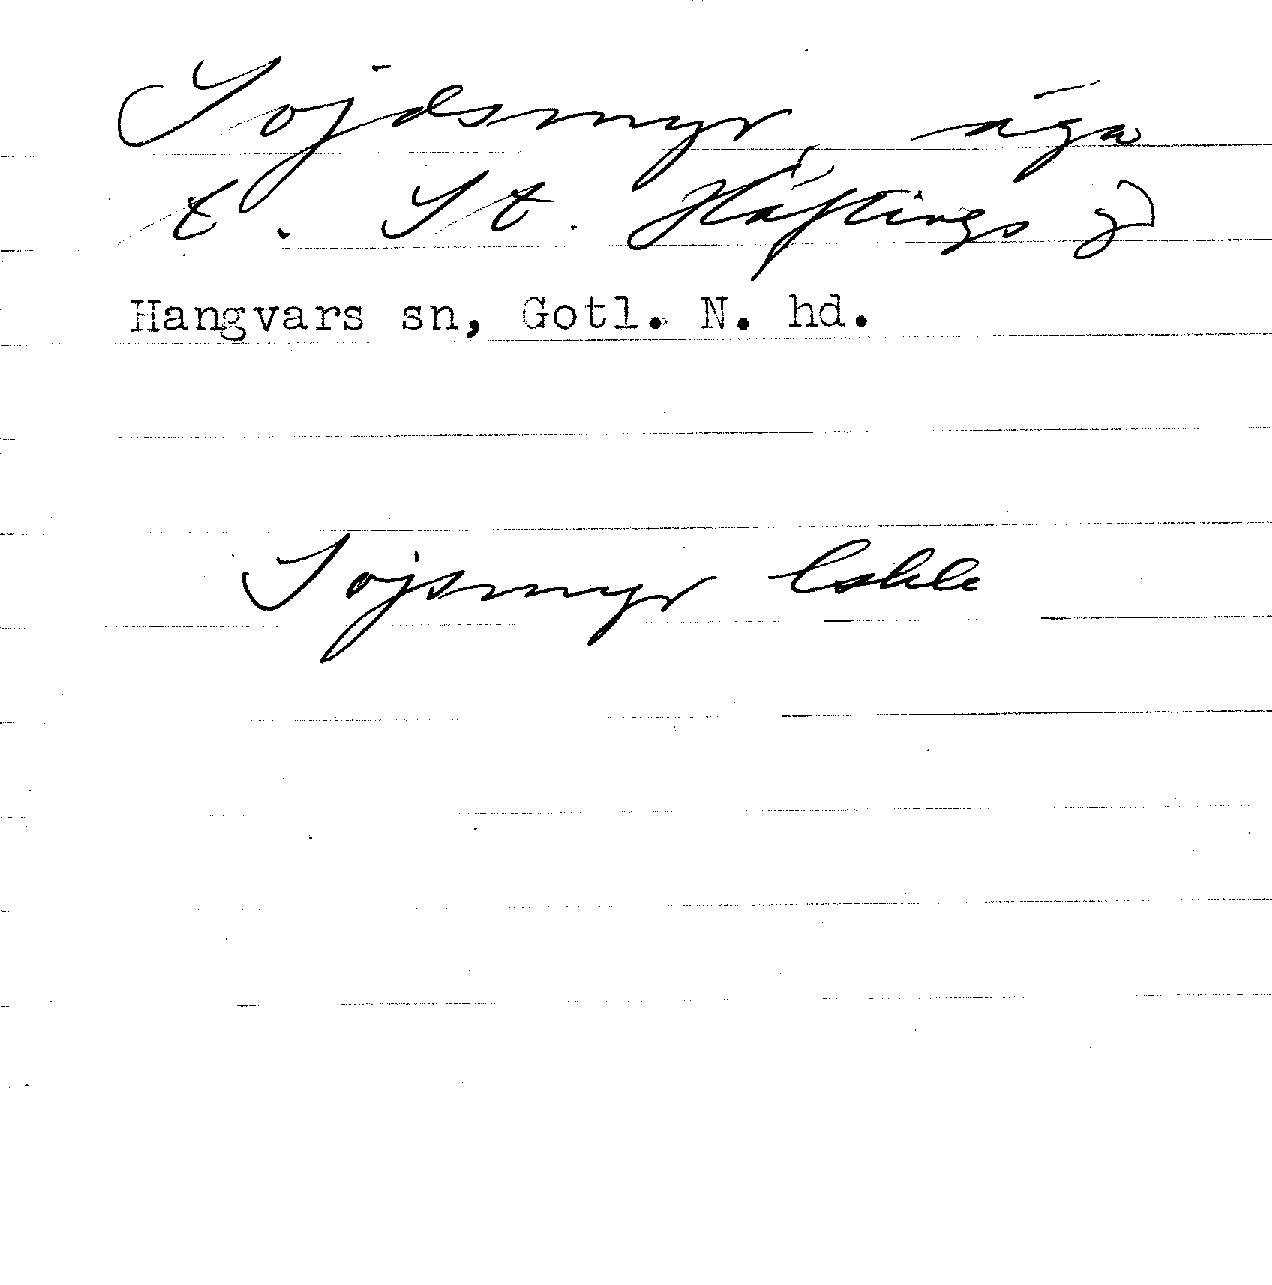 Sojdsmyr, äga
t. St. Häftings gd
Hangvars sn, Gotl. N. hd.
Sojsmyr